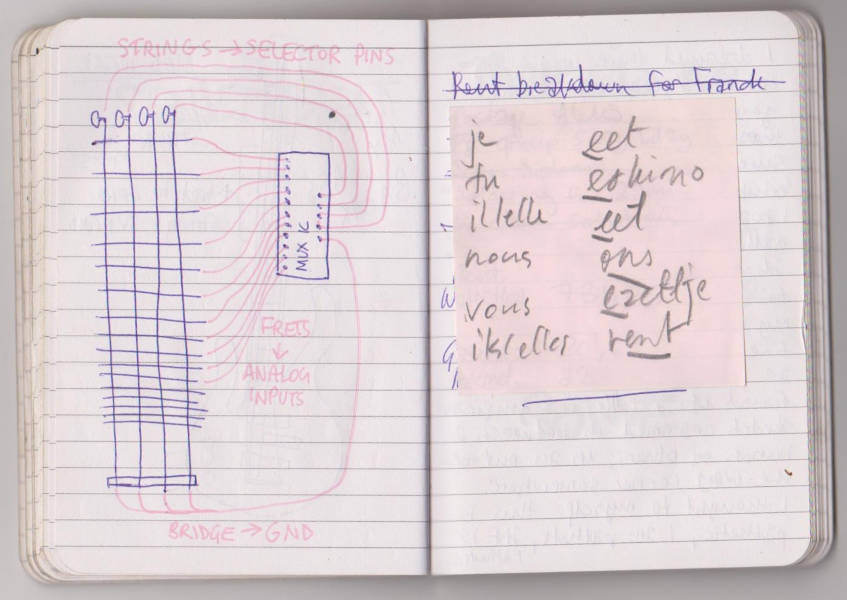 STRINGS → SELECTOR PINS
MUX IC
FRETS
↓
ANALOG
INPUTS
BRIDGE → GND
Rent breakdown for Franck
je eet
tu eskimo
il/elle eet
nous ons
vous ezeltje
ils/elles rent